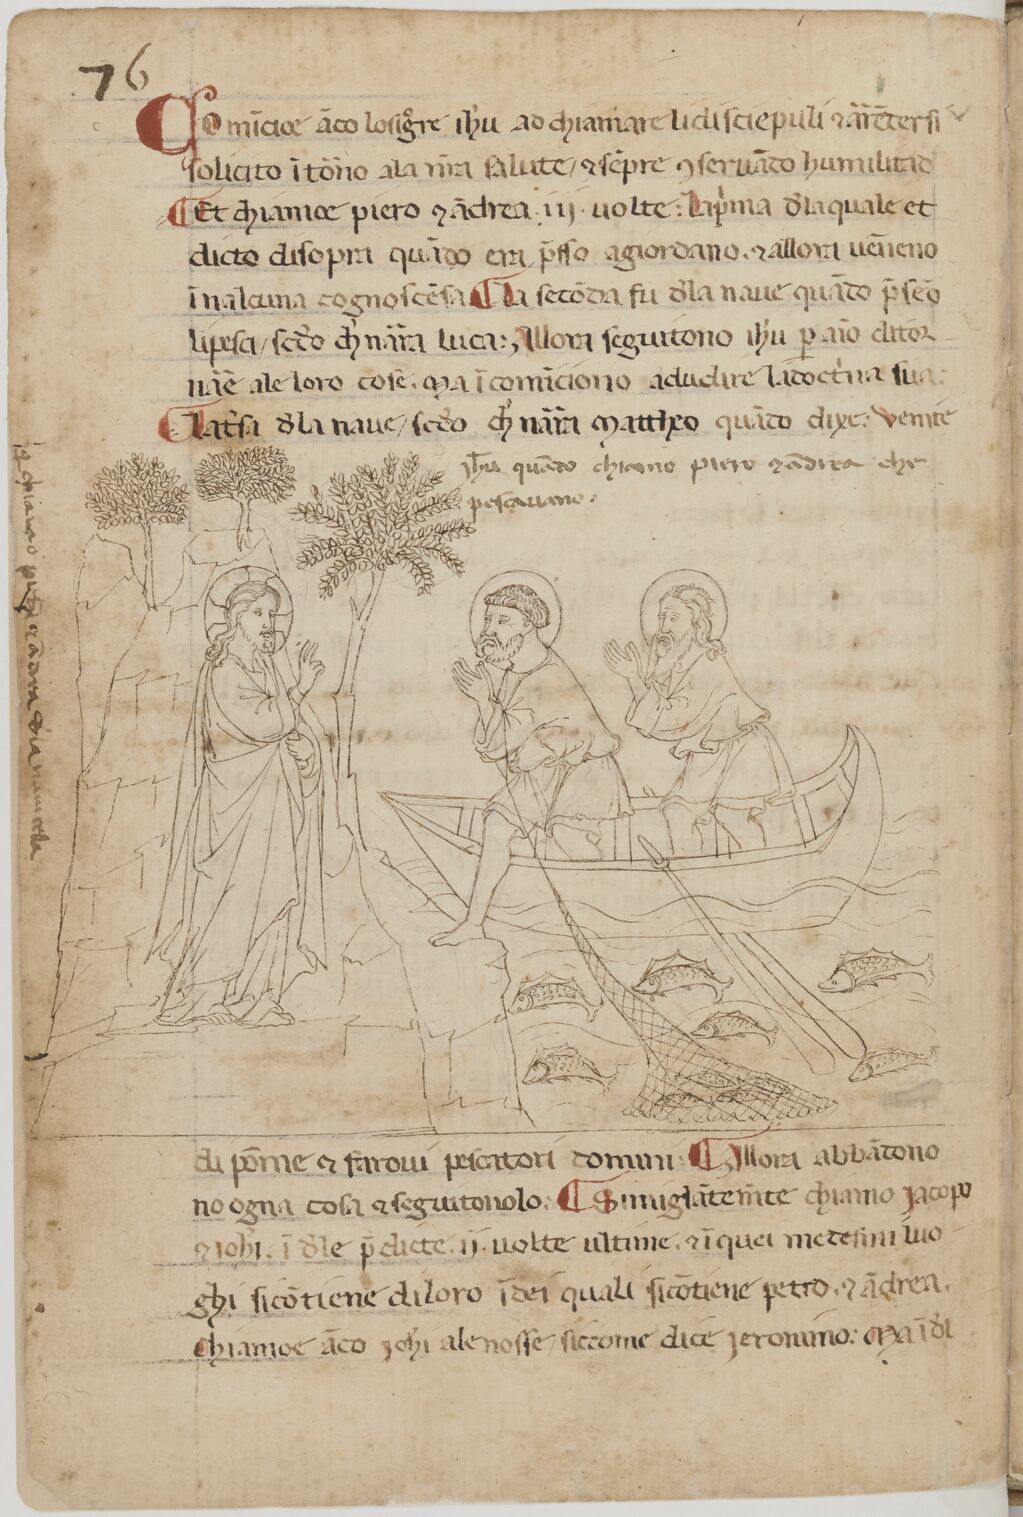 76
Comīcioe āco losigre ihu ad chiamare li disciepuli ⁊ a rēdersi
solicito ī tōno ala nrā salute / ⁊ sēpre ꝯservādo humilitad
Et chiamoe piero ⁊ ādrea .iij. volte: La pima dla quale et
dicto disopra quādo era psso a giordano. ⁊ allora venneno
īn alcuna cognoscēsa La secōda fu dla nave quādo pseo
li pesci / scdo ch narra Luca: Allora seguitono ihu p aīo di tor
nare ale loro cose. Ma īcomīciono ad udire la doctina sua:
La tsa dla nave / scdo ch narra Mattheo quādo dixe: Venite
ihu quādo chiamo piero ⁊ ādrea che
pescavano.
ihu chiamò piero ⁊ ādrea dla navicella
di po me ⁊ farovi pescatori domini: Allora abbādono
no ogna cosa ⁊ seguitonolo: Simiglātemte chiamo Jacopo
⁊ iohi. ī dle pdicte .ij. volte ultime. ⁊ ī quei medesimi luo
ghi si cōtiene di loro ī dei quali si cōtiene petro. ⁊ ādrea.
Chiamoe āco iohi ale nosse / siccome dice Jeronimo: Ma ī dl